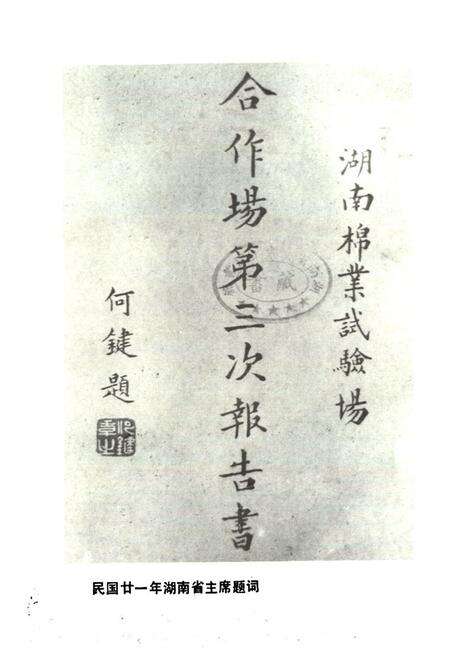 湖南棉業試驗場
合作場第三次報告書
何鍵題
藏書
民国廿一年湖南省主席题词